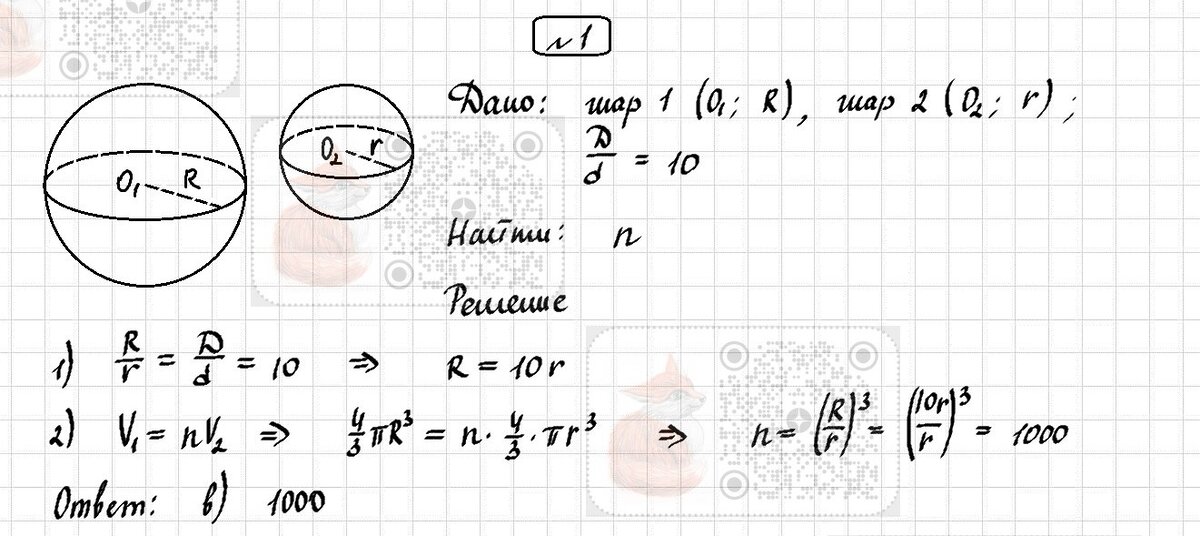 №1
O₁ R
O₂ r
Дано: шар 1 (O₁; R), шар 2 (O₂; r);
D/d = 10
Найти: n
Решение
1) R/r = D/d = 10 ⇒ R = 10r
2) V₁ = nV₂ ⇒ 4/3 πR³ = n · 4/3 · πr³ ⇒ n = (R/r)³ = (10r/r)³ = 1000
Ответ: в) 1000